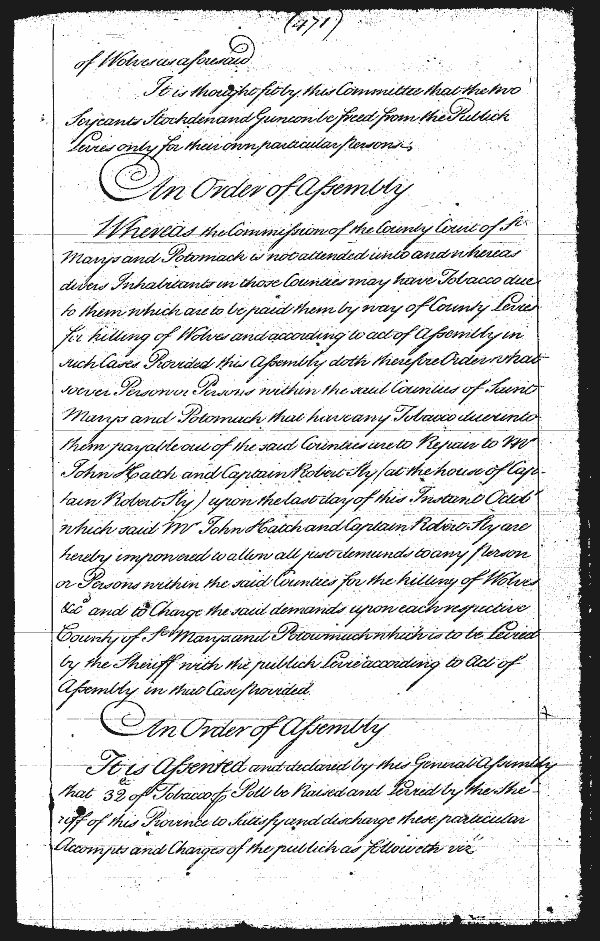 (471)
of Wolves as aforesaid
It is thought fit by this Committee that the two
Serjeants Stockden and Gunson be freed from the Publick
Levies only for their own particular Persons.
An Order of Assembly
Whereas the Commission of the County Court of St.
Marys and Potomack is not attended unto and whereas
divers Inhabitants in those Counties may have Tobacco due
to them which are to be paid them by way of County Levies
for killing of Wolves and according to act of Assembly in
such Cases Provided this Assembly doth therefore Order what
soever Person or Persons within the said Counties of Saint
Marys and Potomack that have any Tobacco due unto
them payable out of the said Counties are to Repair to Mr
John Hatch and Captain Robert Sly (at the house of Cap-
tain Robert Sly) upon the last day of this Instant Octobr
which said Mr John Hatch and Captain Robert Sly are
hereby impowred to allow all just demands to any person
or Persons within the said Counties for the killing of Wolves
&ca and to Charge the said demands upon each respective
County of St Marys and Potowmack which is to be Levied
by the Sheriff with the publick Levie according to Act of
Assembly in that Case provided.
An Order of Assembly
It is Assented and declared by this General Assembly
that 32 of Tobacco Poll be Raised and Levied by the She-
riff of this Province to Satisfy and discharge these particular
Accompts and Charges of the publick as followeth vizt